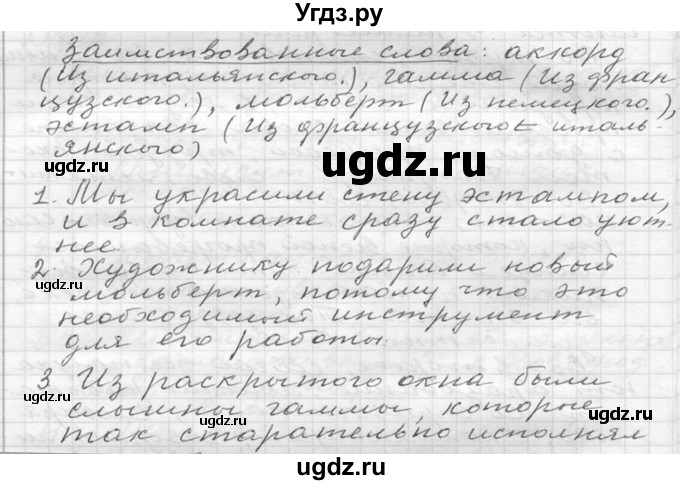 Угдз.ру
Заимствованные слова: аккорд
(Из итальянского.), гамма (Из фран-
цузского.), мольберт (Из немецкого.),
эстамп (Из французского ← италь-
янского)
1. Мы украсили стену эстампом,
и в комнате сразу стало уют-
нее.
2. Художнику подарили новый
мольберт, потому что это
необходимый инструмент
для его работы.
3. Из раскрытого окна были
слышны гаммы, которые
так старательно исполнял
ugdz.ru
ugdz.ru
ugdz.ru
ugdz.ru
ugdz.ru
ugdz.ru
ugdz.ru
ugdz.ru